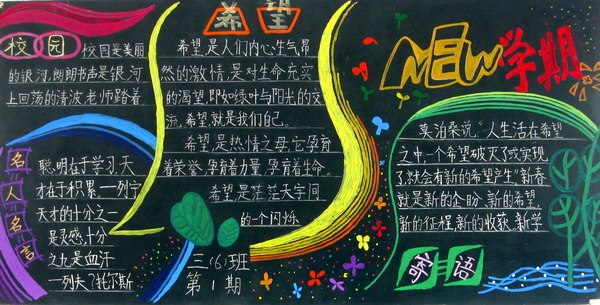 校园
校园是美丽
的银河,朗朗书声是银河
上回荡的清波,老师踏着
名人名言
聪明在于学习,天
才在于积累一列宁
天才的十分之一
是灵感,十分
之九是血汗
一列夫?托尔斯
希望
希望是人们内心生气昂
然的激情,是对生命充实
的渴望,即如绿叶与阳光的交
流,希望就是我们自己。
希望,是热情之母,它孕育
着荣誉,孕育着力量,孕育着生命。
希望是茫茫天宇间
的一个闪烁
三(6)班
第1期
NEW学期
莫泊桑说:"人生活在希望
之中,一个希望破灭了或实现
了,就会有新的希望产生"新春
就是新的企盼、新的希望、
新的征程、新的收获、新学
寄语